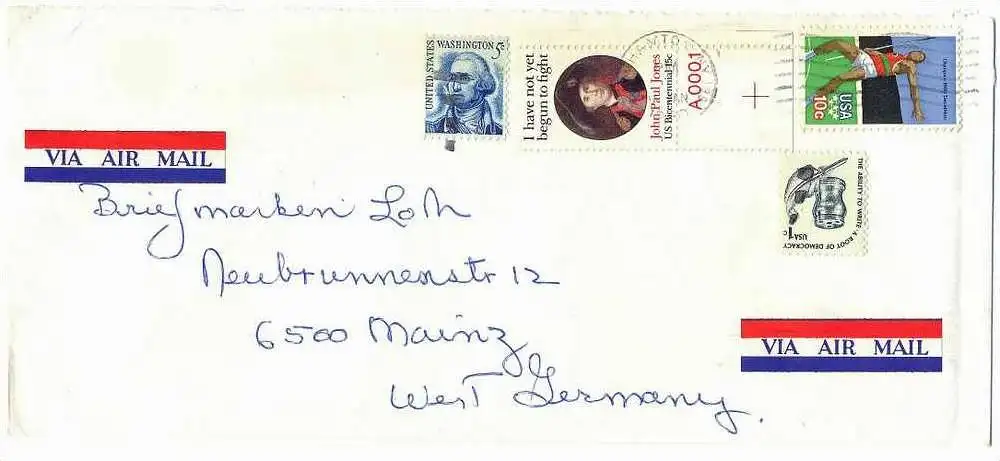 UNITED STATES
WASHINGTON 5c
I have not yet
begun to fight
John Paul Jones
US Bicentennial 15c
A0001
USA
10c
VIA AIR MAIL
THE ABILITY TO WRITE · A ROOT OF DEMOCRACY
USA 1c
Briefmarken Loth
Neubrunnenstr 12
6500 Mainz
West Germany.
VIA AIR MAIL